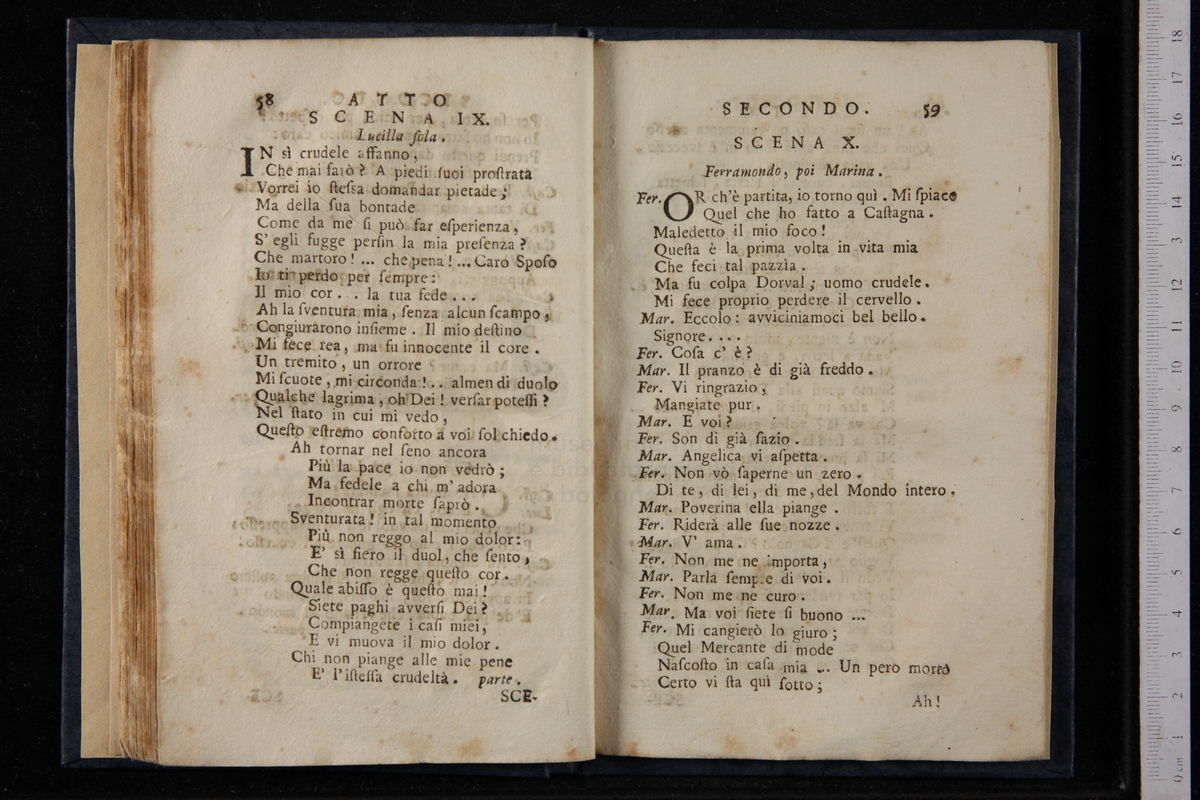 58 ATTO
SCENA IX.
Lucilla ſola.
IN sì crudele affanno,
Che mai farò? A piedi ſuoi proſtrata
Vorrei io ſteſsa domandar pietade;
Ma della ſua bontade
Come da me ſi può far eſperienza,
S' egli fugge perſin la mia preſenza?
Che martoro! ... che pena! ... Caro Spoſo
Io ti perdo per ſempre:
Il mio cor. . . la tua fede ...
Ah la ſventura mia, ſenza alcun ſcampo,
Congiurarono inſieme. Il mio deſtino
Mi fece rea, ma fu innocente il core.
Un tremito, un orrore
Mi ſcuote, mi circonda!.. almen di duolo
Qualche lagrima, oh Dei! verſar poteſſi?
Nel ſtato in cui mi vedo,
Queſto eſtremo conforto a voi ſol chiedo.
Ah tornar nel ſeno ancora
Più la pace io non vedrò;
Ma fedele a chi m' adora
Incontrar morte ſaprò.
Sventurata! in tal momento
Più non reggo al mio dolor:
E' sì fiero il duol, che ſento,
Che non regge queſto cor.
Quale abiſſo è queſto mai!
Siete paghi avverſi Dei?
Compiangete i caſi miei,
E vi muova il mio dolor.
Chi non piange alle mie pene
E' l'iſteſſa crudeltà. parte.
SCE-
SECONDO. 59
SCENA X.
Ferramondo, poi Marina.
Fer. OR ch'è partita, io torno quì. Mi ſpiace
Quel che ho fatto a Caſtagna.
Maledetto il mio foco!
Queſta è la prima volta in vita mia
Che feci tal pazzìa.
Ma fu colpa Dorval; uomo crudele.
Mi fece proprio perdere il cervello.
Mar. Eccolo: avviciniamoci bel bello.
Signore. ...
Fer. Coſa c' è?
Mar. Il pranzo è di già freddo.
Fer. Vi ringrazio,
Mangiate pur.
Mar. E voi?
Fer. Son di già ſazio.
Mar. Angelica vi aſpetta.
Fer. Non vò ſaperne un zero.
Di te, di lei, di me, del Mondo intero.
Mar. Poverina ella piange.
Fer. Riderà alle ſue nozze.
Mar. V' ama.
Fer. Non me ne importa,
Mar. Parla ſempre di voi.
Fer. Non me ne curo.
Mar. Ma voi ſiete ſi buono ...
Fer. Mi cangierò lo giuro;
Quel Mercante di mode
Naſcoſto in caſa mia ... Un però morto
Certo vi ſta quì ſotto;
Ah!
0 cm 1 2 3 4 5 6 7 8 9 10 11 12 13 14 15 16 17 18